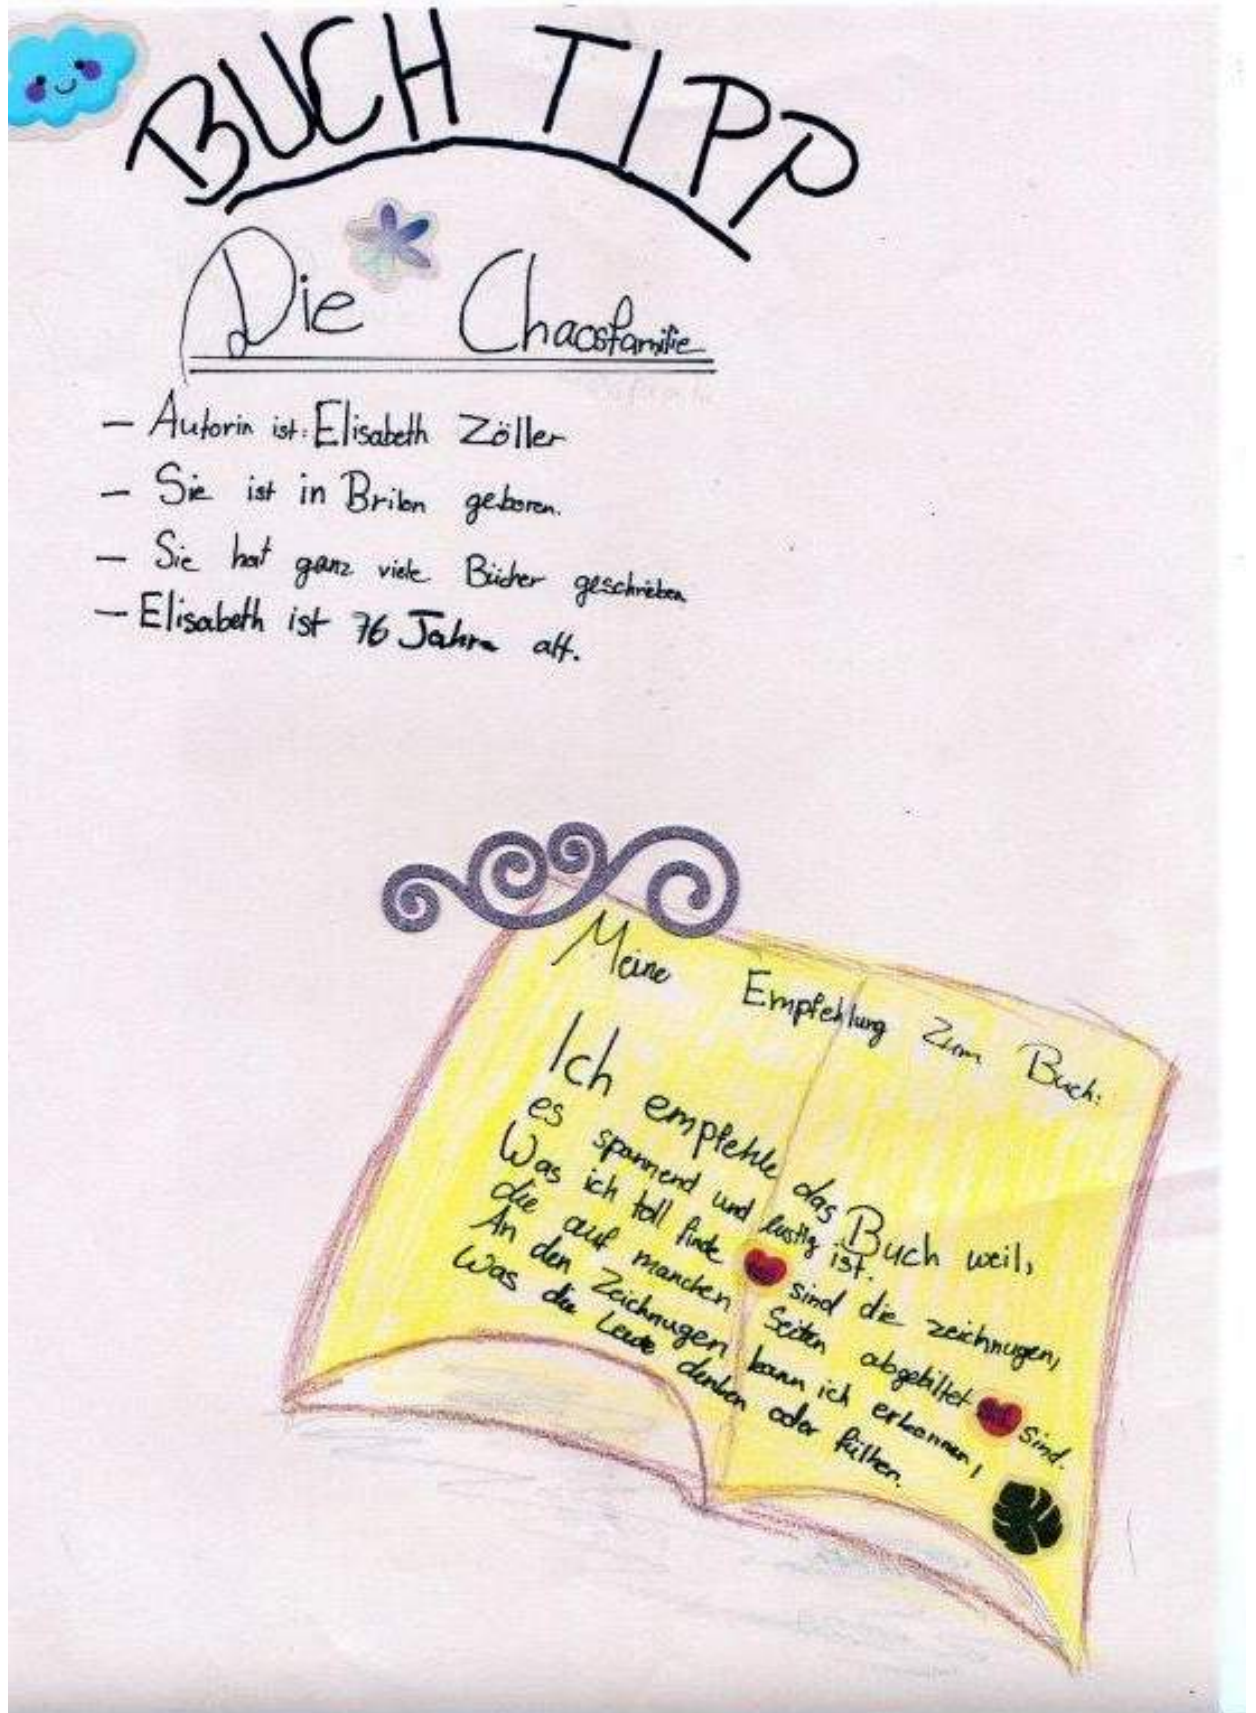 BUCH TIPP
Die Chaosfamilie
– Autorin ist: Elisabeth Zöller
– Sie ist in Brilon geboren.
– Sie hat ganz viele Bücher geschrieben
– Elisabeth ist 76 Jahre alt.
Meine Empfehlung zum Buch:
Ich empfehle das Buch weil,
es spannend und lustig ist.
Was ich toll finde sind die zeichnugen,
die auf manchen Seiten abgebiltet sind.
An den Zeichnugen kann ich erkennen,
Was die Leute denken oder fülhen.